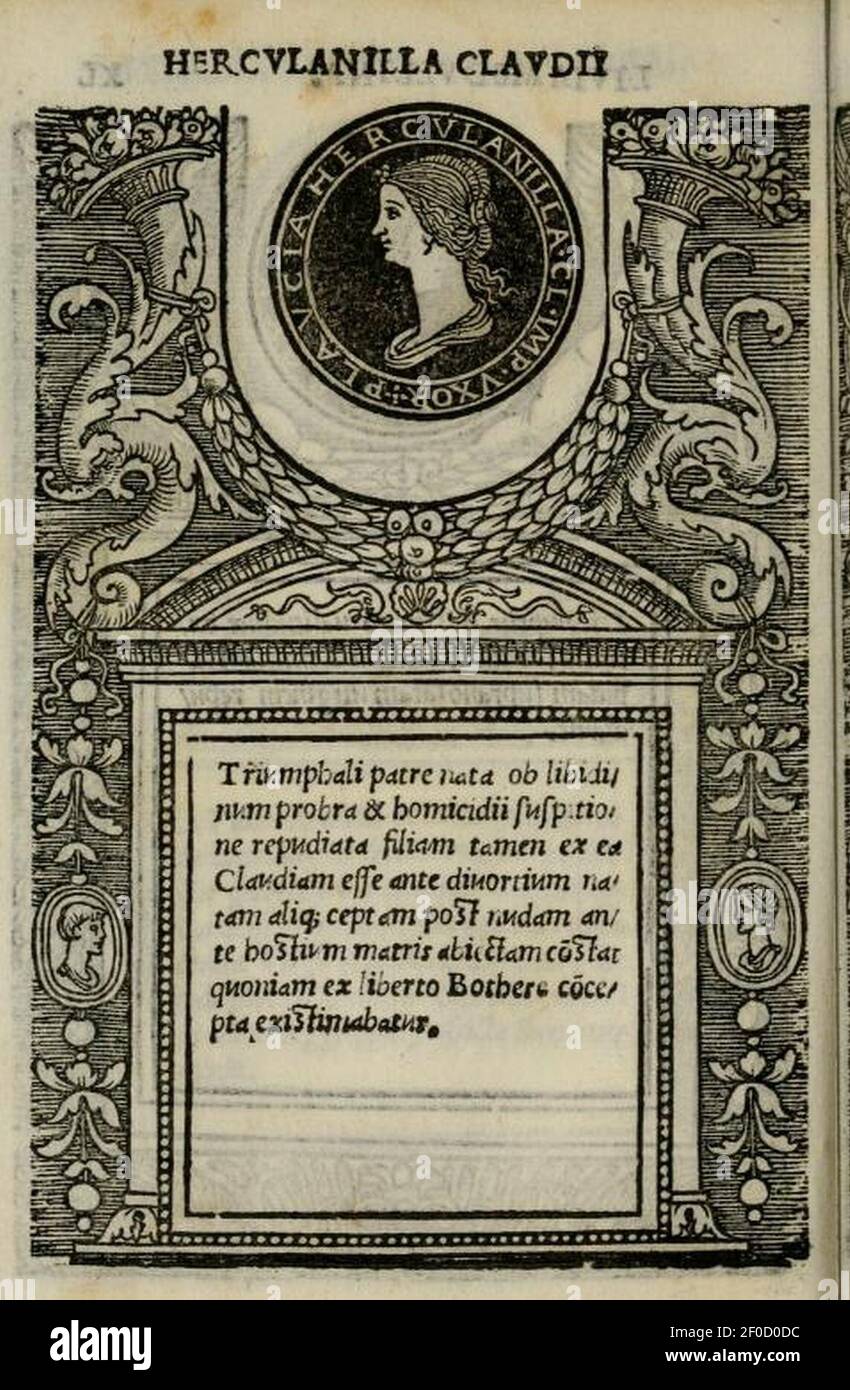 HERCVLANILLA CLAVDII
PLAVCIA HERCVLANILLA·CL·IMP·VXOR·
Triumphali patre nata ob libidi/
num probra & homicidii suspitio/
ne repudiata filiam tamen ex ea
Claudiam esse ante diuortium na/
tam aliq; ceptam post nudam an/
te hostium matris abiectam cōstat
quoniam ex liberto Bothere cōce/
pta existimabatur.
alamy
Image ID: 2F0D0DC
www.alamy.com